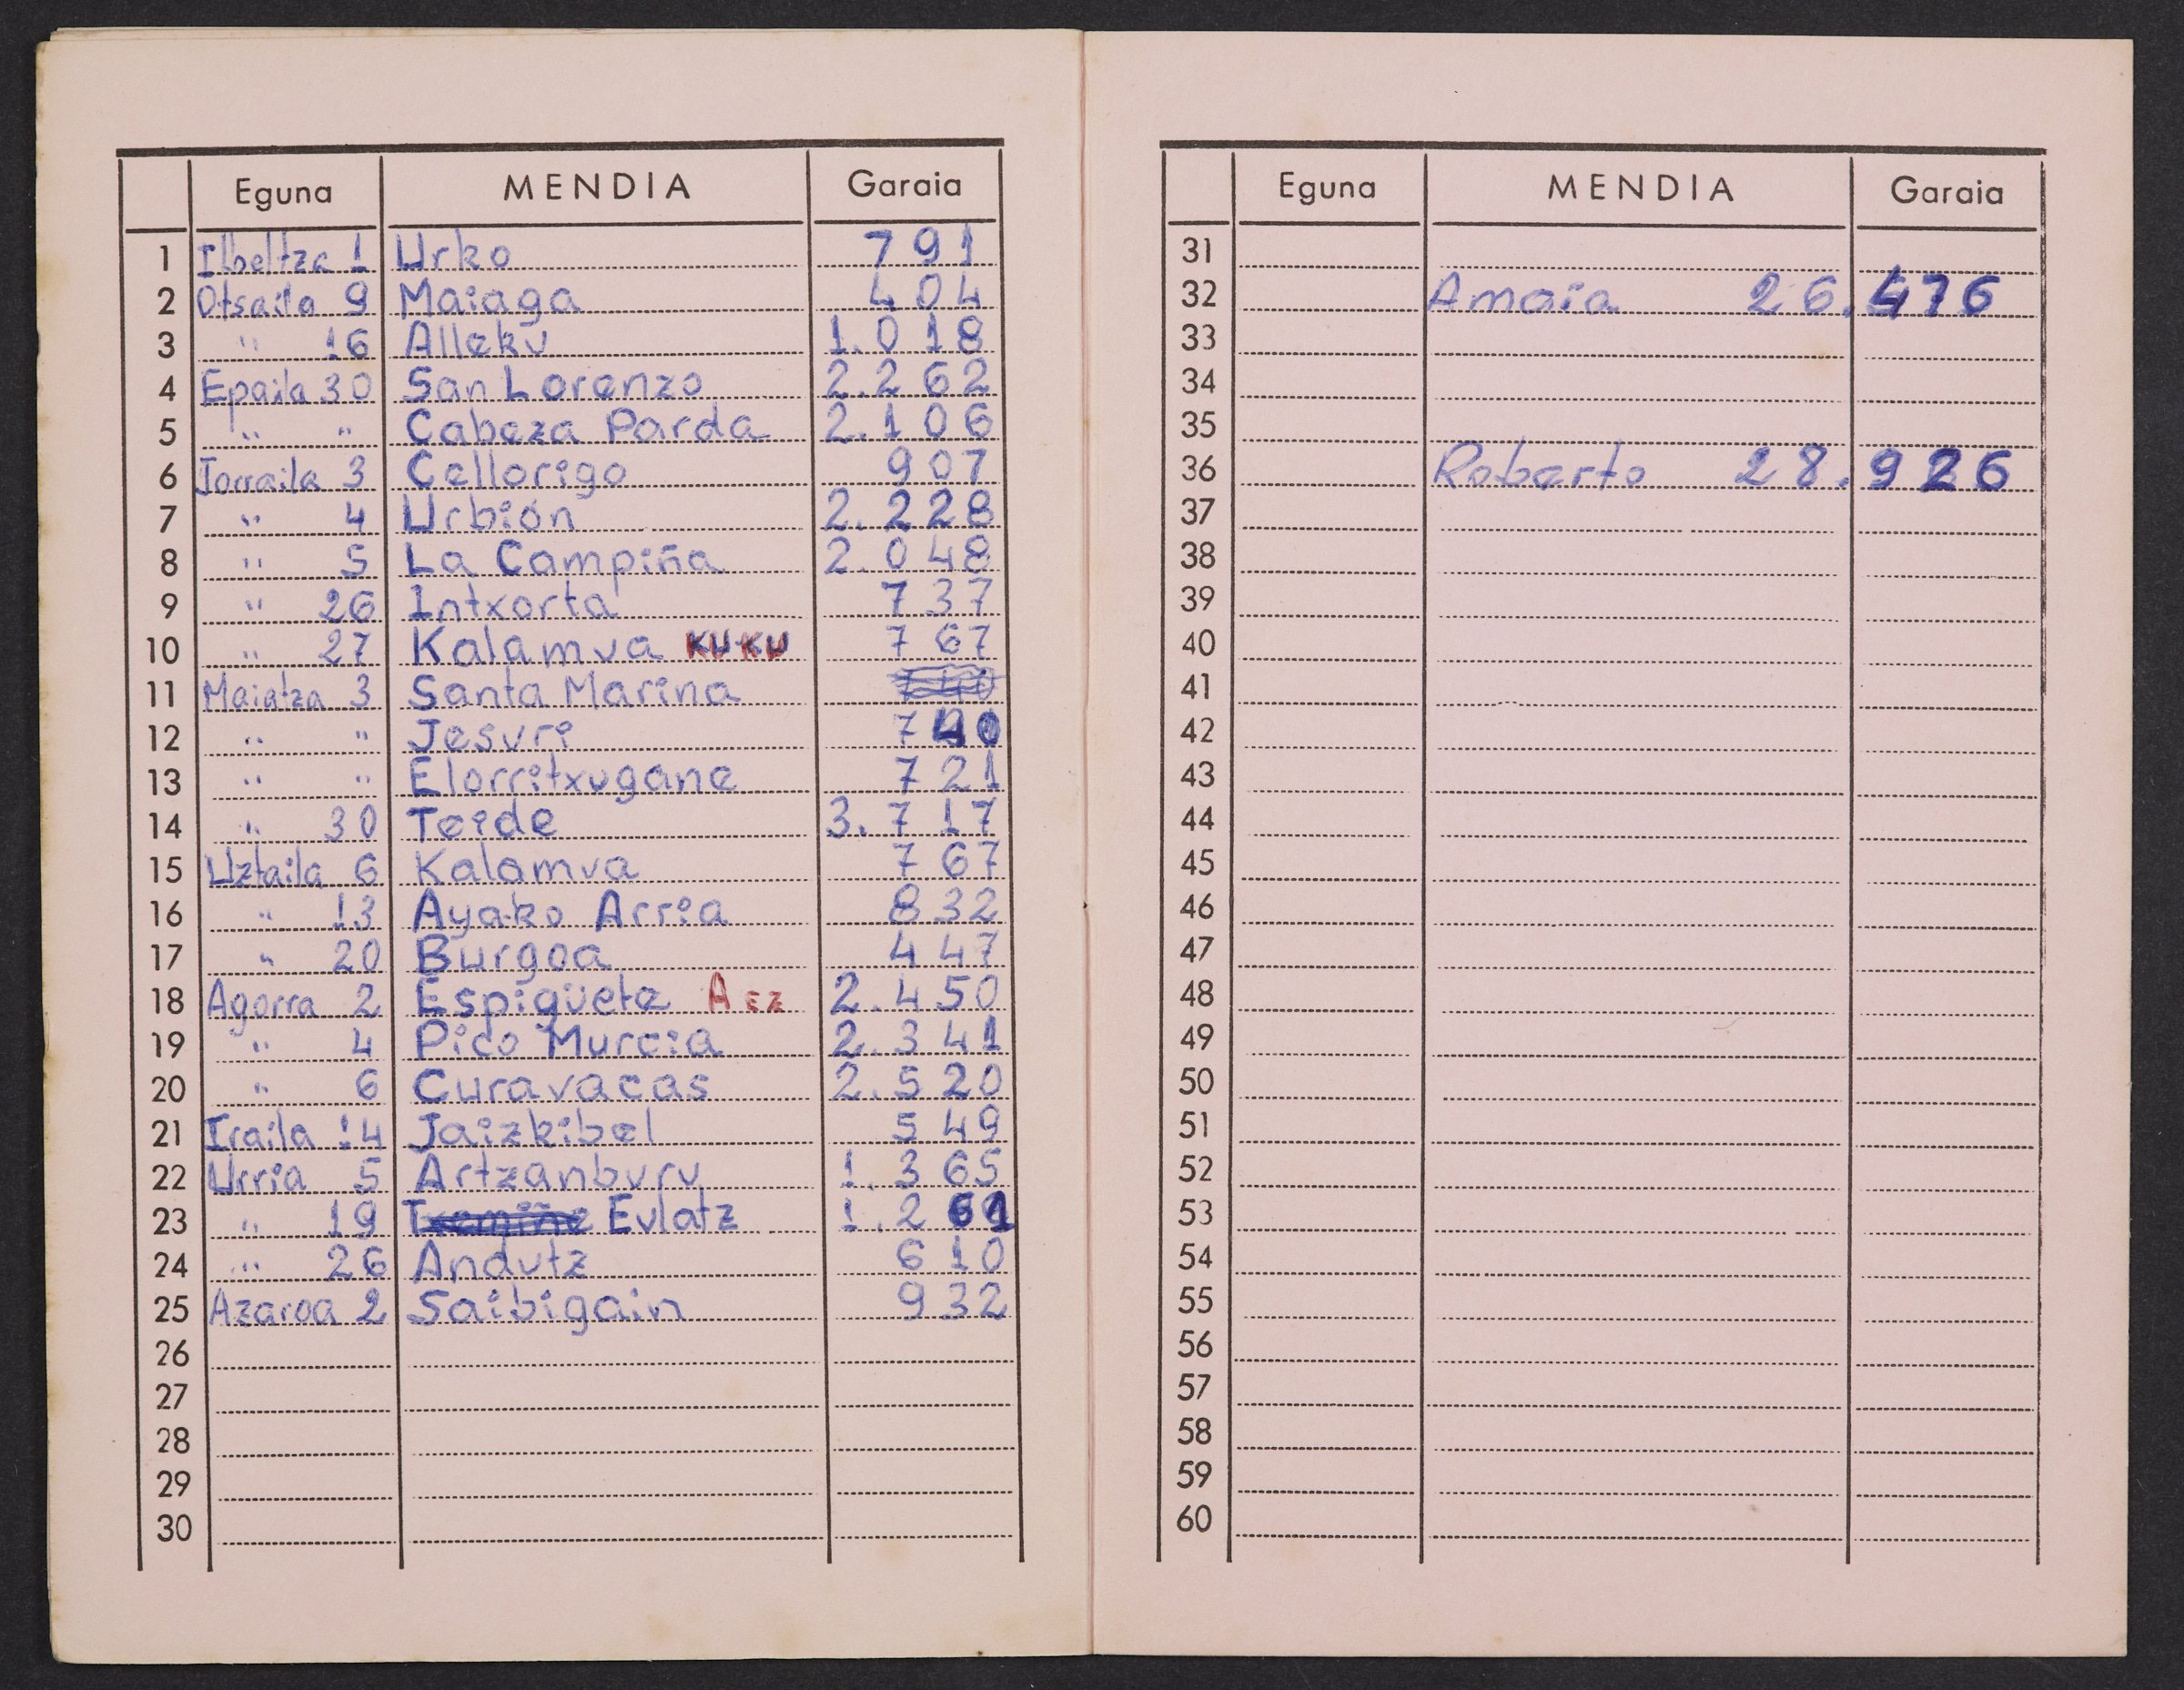 Eguna MENDIA Garaia
1 Ilbeltza 1 Urko 791
2 Otsaila 9 Maiaga 404
3 " 16 Alleku 1.018
4 Epaila 30 San Lorenzo 2.262
5 " " Cabeza Parda 2.106
6 Jorraila 3 Cellorigo 907
7 " 4 Urbión 2.228
8 " 5 La Campiña 2.048
9 " 26 Intxorta 737
10 " 27 Kalamua KUKU 767
11 Maiatza 3 Santa Marina
12 " " Jesuri 740
13 " " Elorritxugane 721
14 " 30 Teide 3.717
15 Uztaila 6 Kalamua 767
16 " 13 Ayako Arria 832
17 " 20 Burgoa 447
18 Agorra 2 Espigüete A EZ 2.450
19 " 4 Pico Murcia 2.341
20 " 6 Curavacas 2.520
21 Iraila 14 Jaizkibel 549
22 Urria 5 Artzanburu 1.365
23 " 19 Eulatz 1.261
24 " 26 Andutz 610
25 Azaroa 2 Saibigain 932
26
27
28
29
30
Eguna MENDIA Garaia
31
32 Amaia 26.476
33
34
35
36 Roberto 28.926
37
38
39
40
41
42
43
44
45
46
47
48
49
50
51
52
53
54
55
56
57
58
59
60